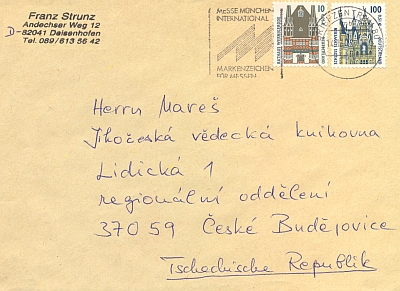 Franz Strunz
Andechser Weg 12
D-82041 Deisenhofen
Tel. 089/613 56 42
MESSE MÜNCHEN
INTERNATIONAL
MARKENZEICHEN
FÜR MESSEN
10
100
Herrn Mareš
Jihočeská vědecká knihovna
Lidická 1
regionální oddělení
37059 České Budějovice
Tschechische Republik